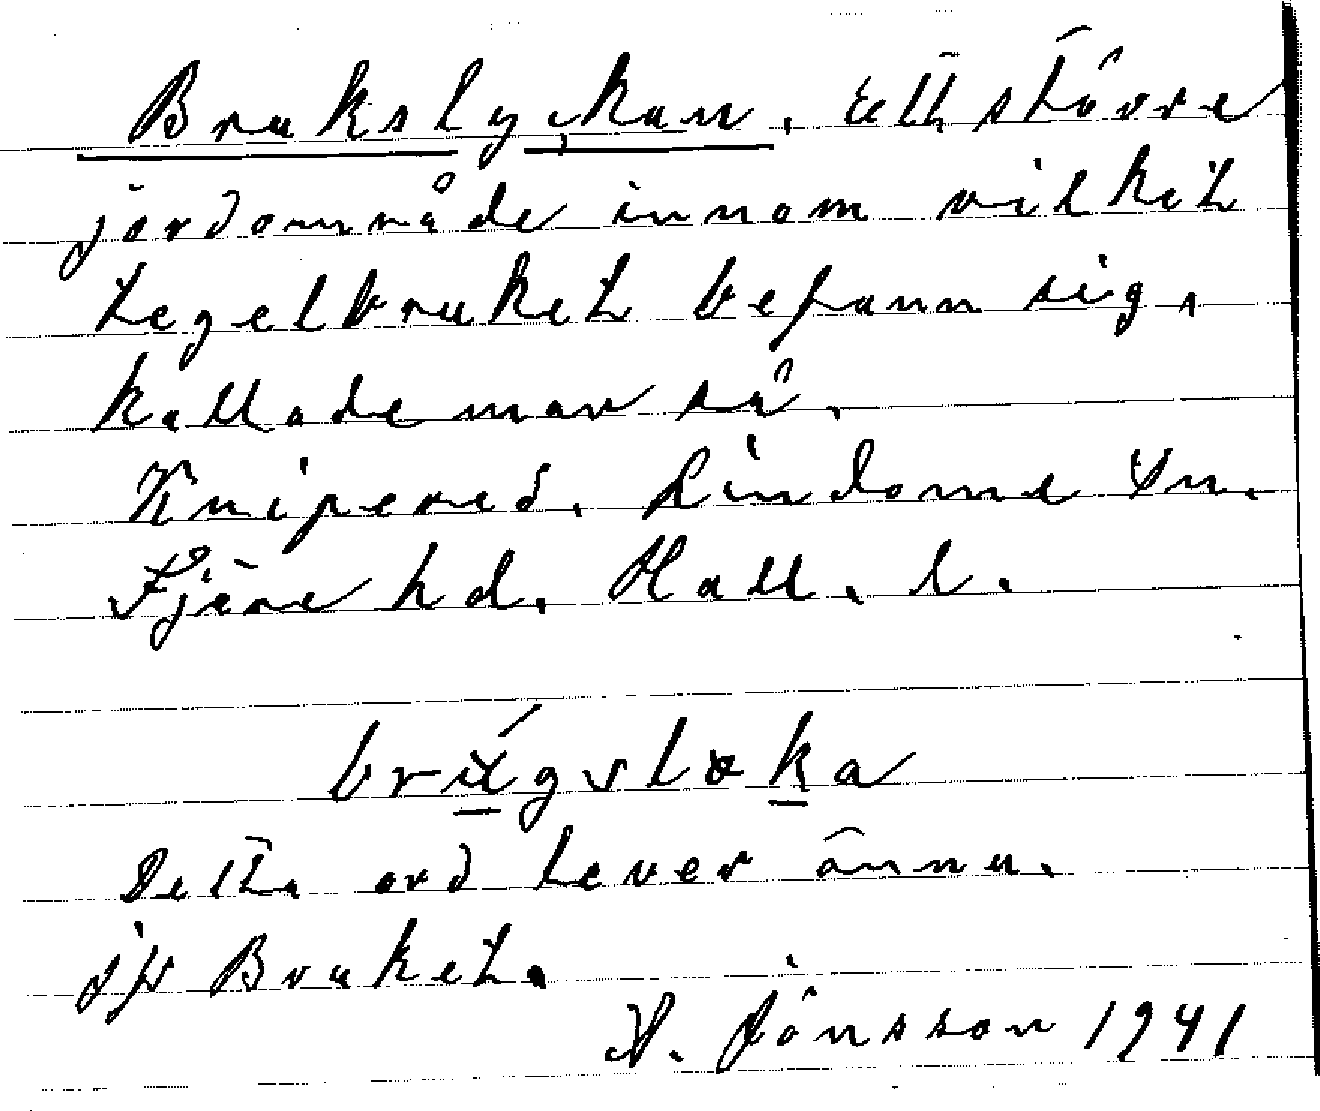 Brukslyckan. Ett större
jordområde innom vilket
tegelbruket befann sig,
kallade man så.
Knipered. Lindome sn.
Fjäre hd. Hall. l.
Detta ord lever ännu.
jfr Bruket.
A. Jönsson 1941